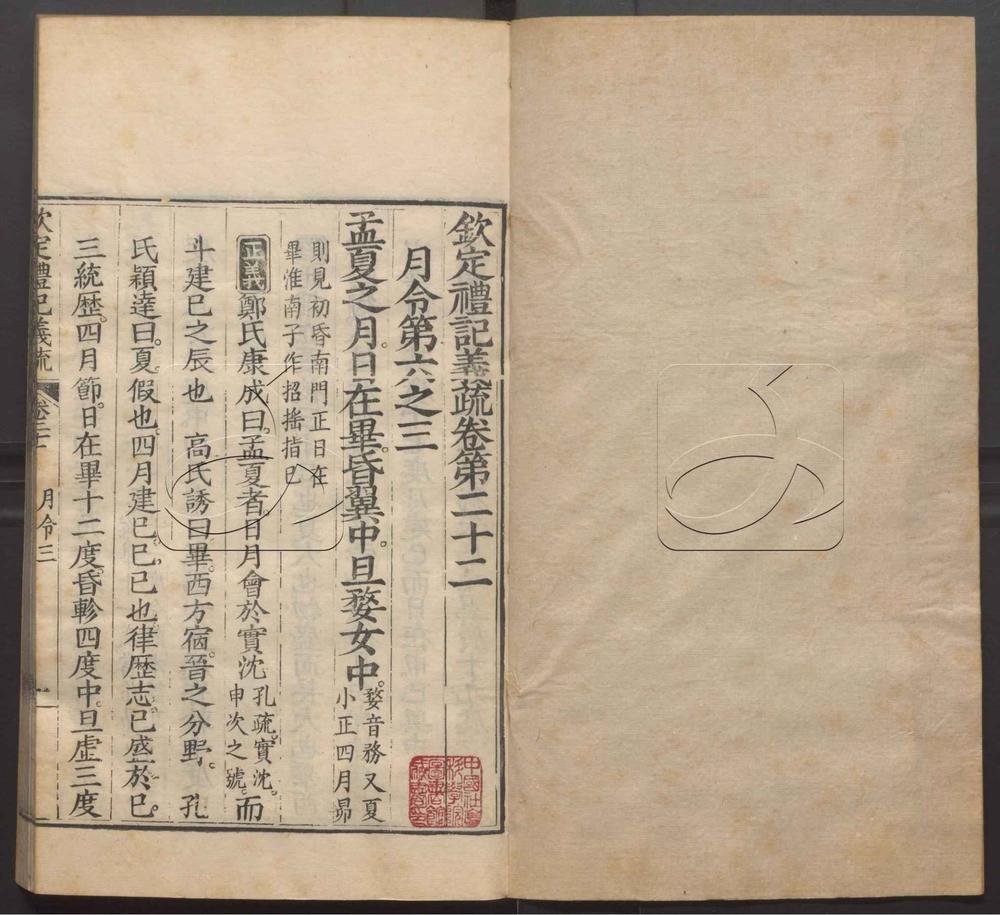 欽定禮記義疏卷第二十二
月令第六之三
孟夏之月。日在畢。昏翼中。旦婺女中。婺音務又夏
小正四月昴
則見初昏南門正日在
畢淮南子作招搖指巳
正義鄭氏康成曰。孟夏者。日月會於實沈孔疏。實沈。
申次之號。而
斗建巳之辰也 高氏誘曰畢。西方宿。晉之分野。 孔
氏穎達曰。夏假也。四月建巳。巳。巳也。律歷志。巳盛於巳。
三統歷。四月節。日在畢十二度。昏軫四度中。旦虛三度
欽定禮記義疏 卷二十二 月令三 一